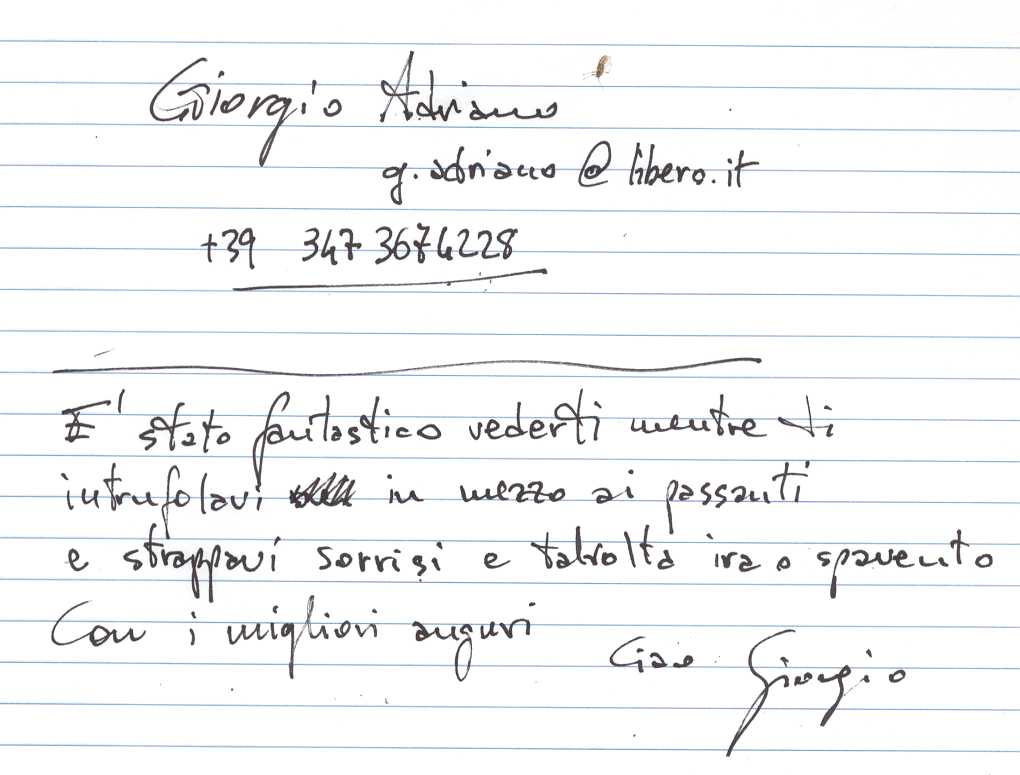 Giorgio Adriano
g.adriano@libero.it
+39 347 3674228
E' stato fantastico vederti mentre ti
intrufolavi in mezzo ai passanti
e strappavi sorrisi e talvolta ira o spavento
Con i migliori auguri
Ciao Giorgio